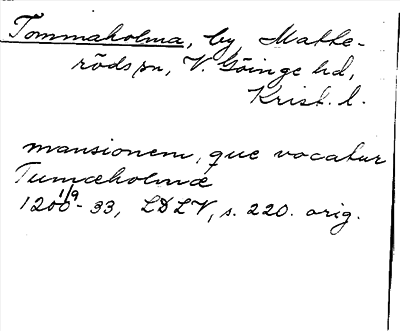 Tommaholma, by, Matte-
röds sn, V. Göinge hd,
Krist. l.
mansionem, que vocatur
Tumæholmæ
1/9
1200-33, LDLV, s. 220. orig.